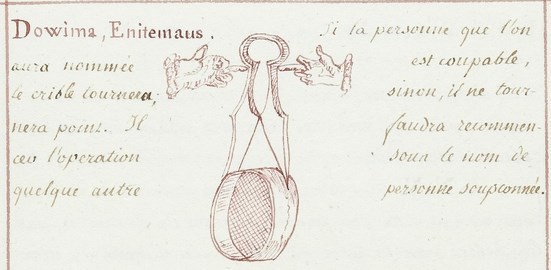 Dowima, Enitemaus. Si la personne que l'on
aura nommée est coupable,
le crible tournera; sinon, il ne tour-
nera point. Il faudra recommen-
cer l'operation sous le nom de
quelque autre personne soupconnée.